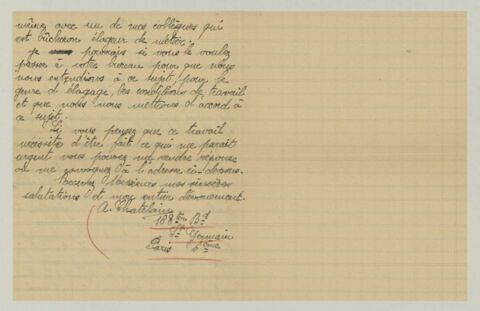 même avec un de mes collègues qui
est bûcheron élagueur de métier.
Je pourrais si vous le voulez
passer à votre bureau pour que nous
nous entendions à ce sujet, pour le
genre d'élagage, les conditions de travail
et que nous nous mettions d'accord à
ce sujet.
Si vous pensez que ce travail
nécessite d'être fait ce qui me parait
urgent vous pouvez me rendre réponse
ou me convoquer à l'adresse ci-dessous.
Recevez Messieurs mes sincères
salutations et mon entier dévouement.
A. Chatelain
188 Bd
St Germain
Paris